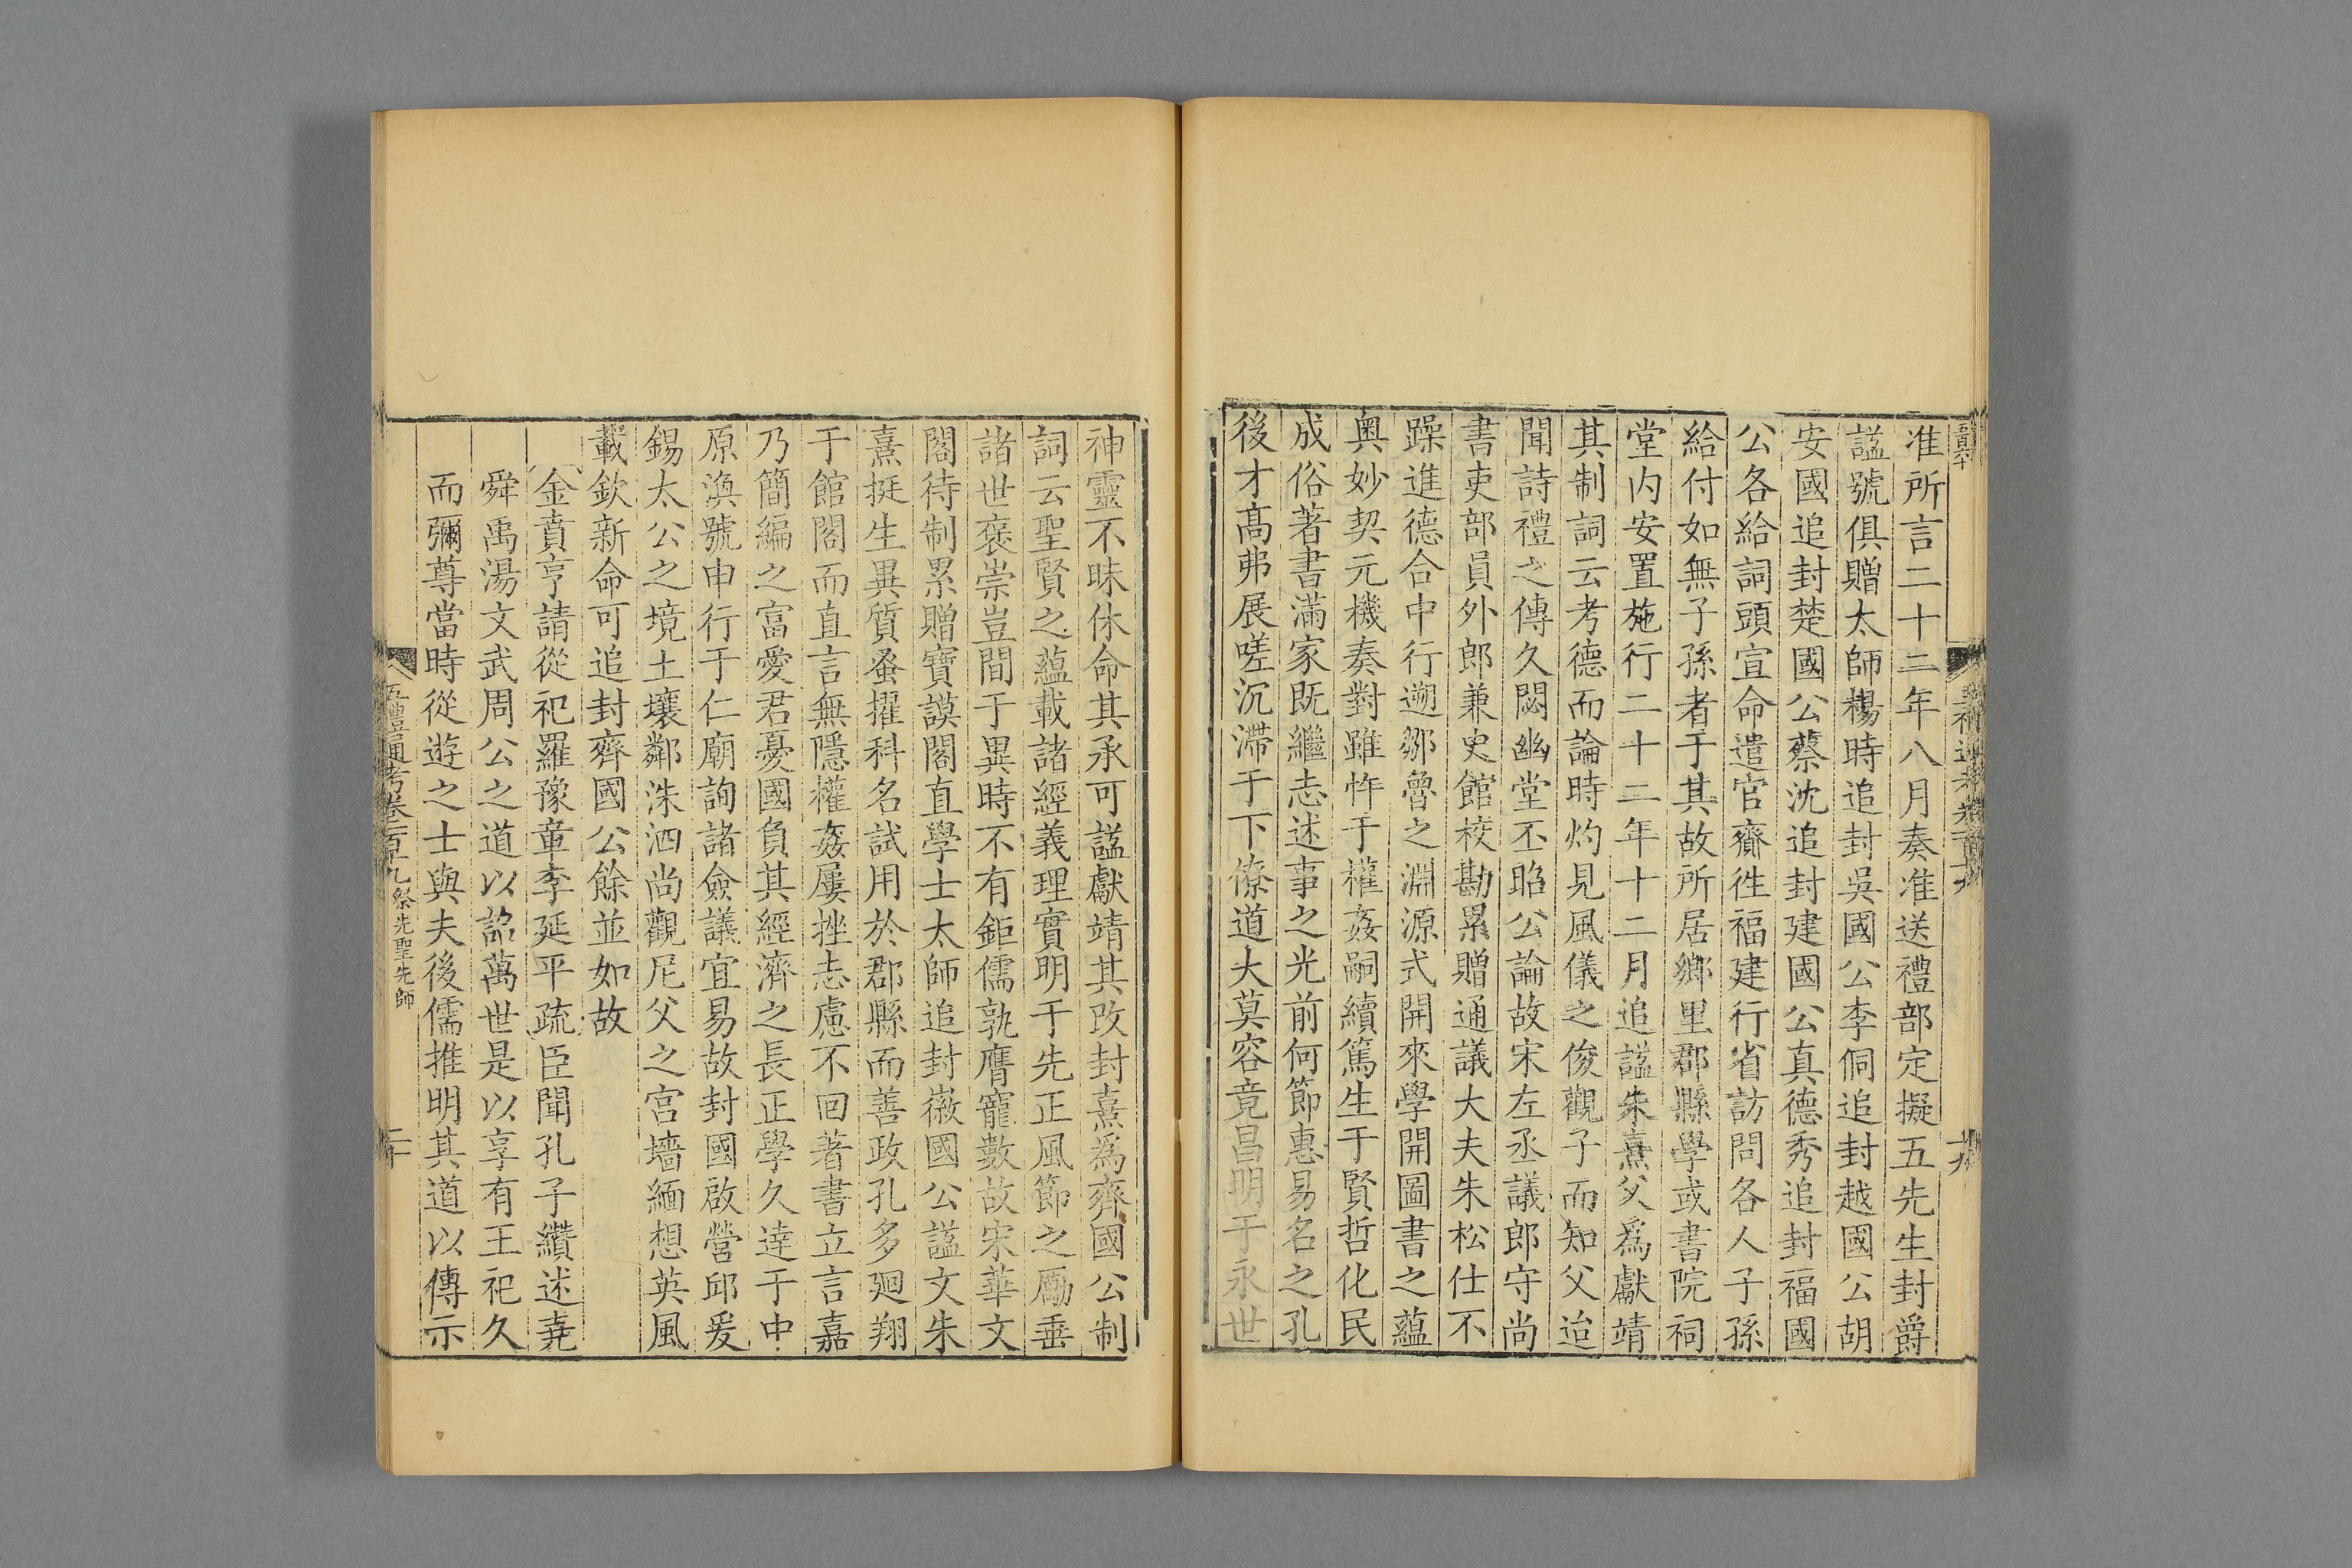 准所言二十二年八月奏准送禮部定擬五先生封爵
諡號俱贈太師楊時追封吳國公李侗追封越國公胡
安國追封楚國公蔡沈追封建國公真德秀追封福國
公各給詞頭宣命遣官齎徃福建行省訪問各人子孫
給付如無子孫者于其故所居鄉里郡縣學或書院祠
堂内安置施行二十二年十二月追諡朱熹父爲獻靖
其制詞云考德而論時灼見風儀之俊觀子而知父迨
聞詩禮之傳久閟幽堂丕昭公論故宋左丞議郎守尚
書吏部員外郎兼史館校勘累贈通議大夫朱松仕不
躁進德合中行遡鄒魯之淵源式開來學闡圖書之蘊
奥妙契元機奏對雖忤于權姦嗣續篤生于賢哲化民
成俗著書滿家既繼志述事之光前何節惠易名之孔
後才高弗展嗟沉滯于下僚道大莫容竟昌明于永世
神靈不昧休命其承可諡獻靖其改封熹爲齊國公制
詞云聖賢之蘊載諸經義理實明于先正風節之厲垂
諸世褒崇豈間于異時不有鉅儒孰膺寵數故宋華文
閣待制累贈寶謨閣直學士太師追封徽國公諡文朱
熹挺生異質蚤擢科名試用於郡縣而善政孔多廻翔
于館閣而直言無隱權姦屢挫志慮不回著書立言嘉
乃簡編之富愛君憂國負其經濟之長正學久達于中
原渙號申行于仁廟詢諸僉議宜易故封國啟營邱爰
錫太公之境土壤鄰洙泗尚觀尼父之宫墻緬想英風
載欽新命可追封齊國公餘並如故
金賁亨請從祀羅豫章李延平疏臣聞孔子纘述堯
舜禹湯文武周公之道以詔萬世是以享有王祀久
而彌尊當時從遊之士與夫後儒推明其道以傳示
五禮通考卷一百十九 祭先聖先師
二十